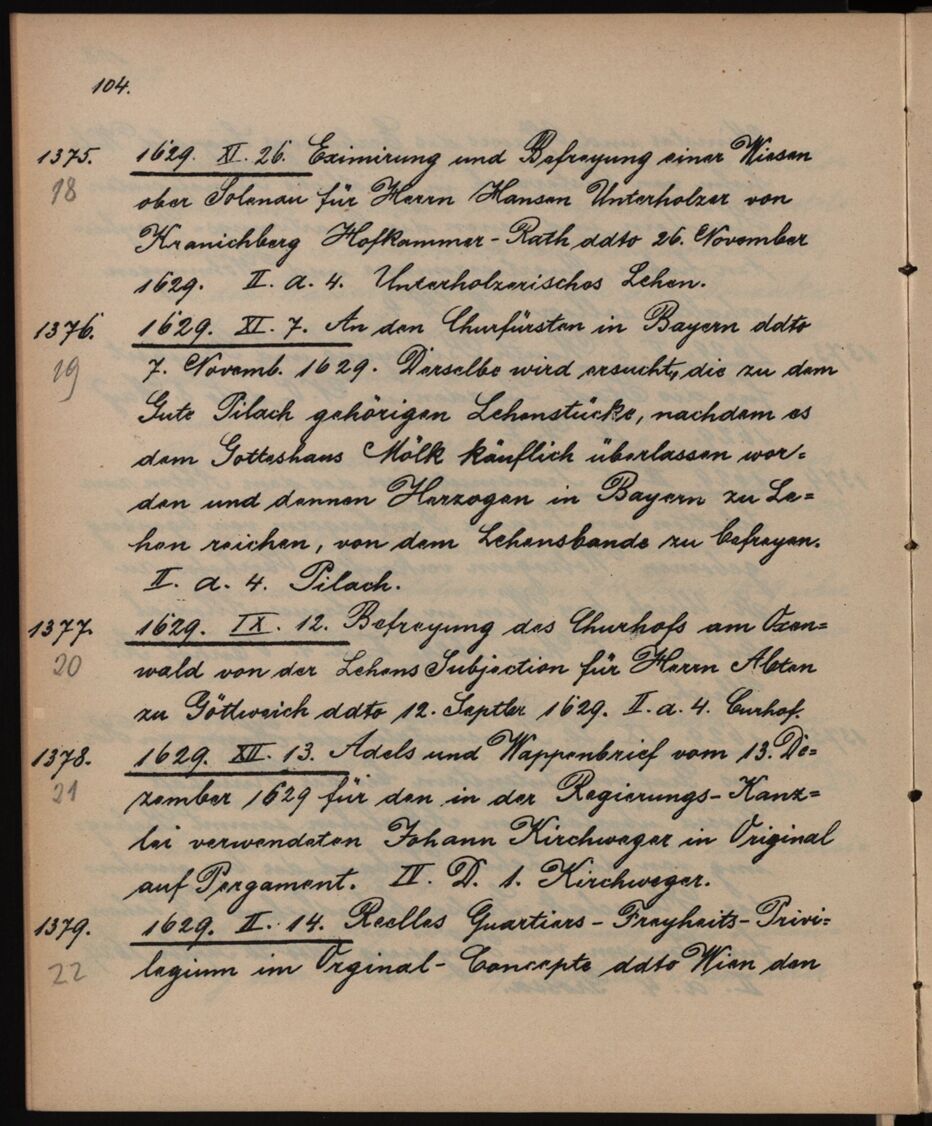 104.
1375. 1629. XI. 26. Eximirung und Befreyung einer Wiesen
18 ober Solenau für Herrn Hansen Unterholzer von
Kranichberg Hofkammer-Rath ddto 26. November
1629. II. a. 4. Unterholzerisches Lehen.
1376. 1629. XI. 7. An den Churfürsten in Bayern ddto
19 7. Novemb. 1629. Derselbe wird ersucht, die zu dem
Gute Pilach gehörigen Lehenstücke, nachdem es
dem Gotteshaus Mölk käuflich überlassen wor=
den und dennen Herzogen in Bayern zu Le=
hen reichen, von dem Lehensbande zu befreyen.
II. a. 4. Pilach.
1377. 1629. IX. 12. Befreyung des Churhofs am Oxen=
20 wald von der Lehens Subjection für Herrn Abten
zu Göttweich ddto 12. Septber 1629. II. a. 4. Curhof.
1378. 1629. XII. 13. Adels und Wappenbrief vom 13. De=
21 zember 1629 für den in der Regierungs-Kanz=
lei verwendeten Johann Kirchweger in Original
auf Pergament. IV. D. 1. Kirchweger.
1379. 1629. II. 14. Reelles Quartiers-Freyheits-Privi=
22 legium im Orginal-Concepte ddto Wien den